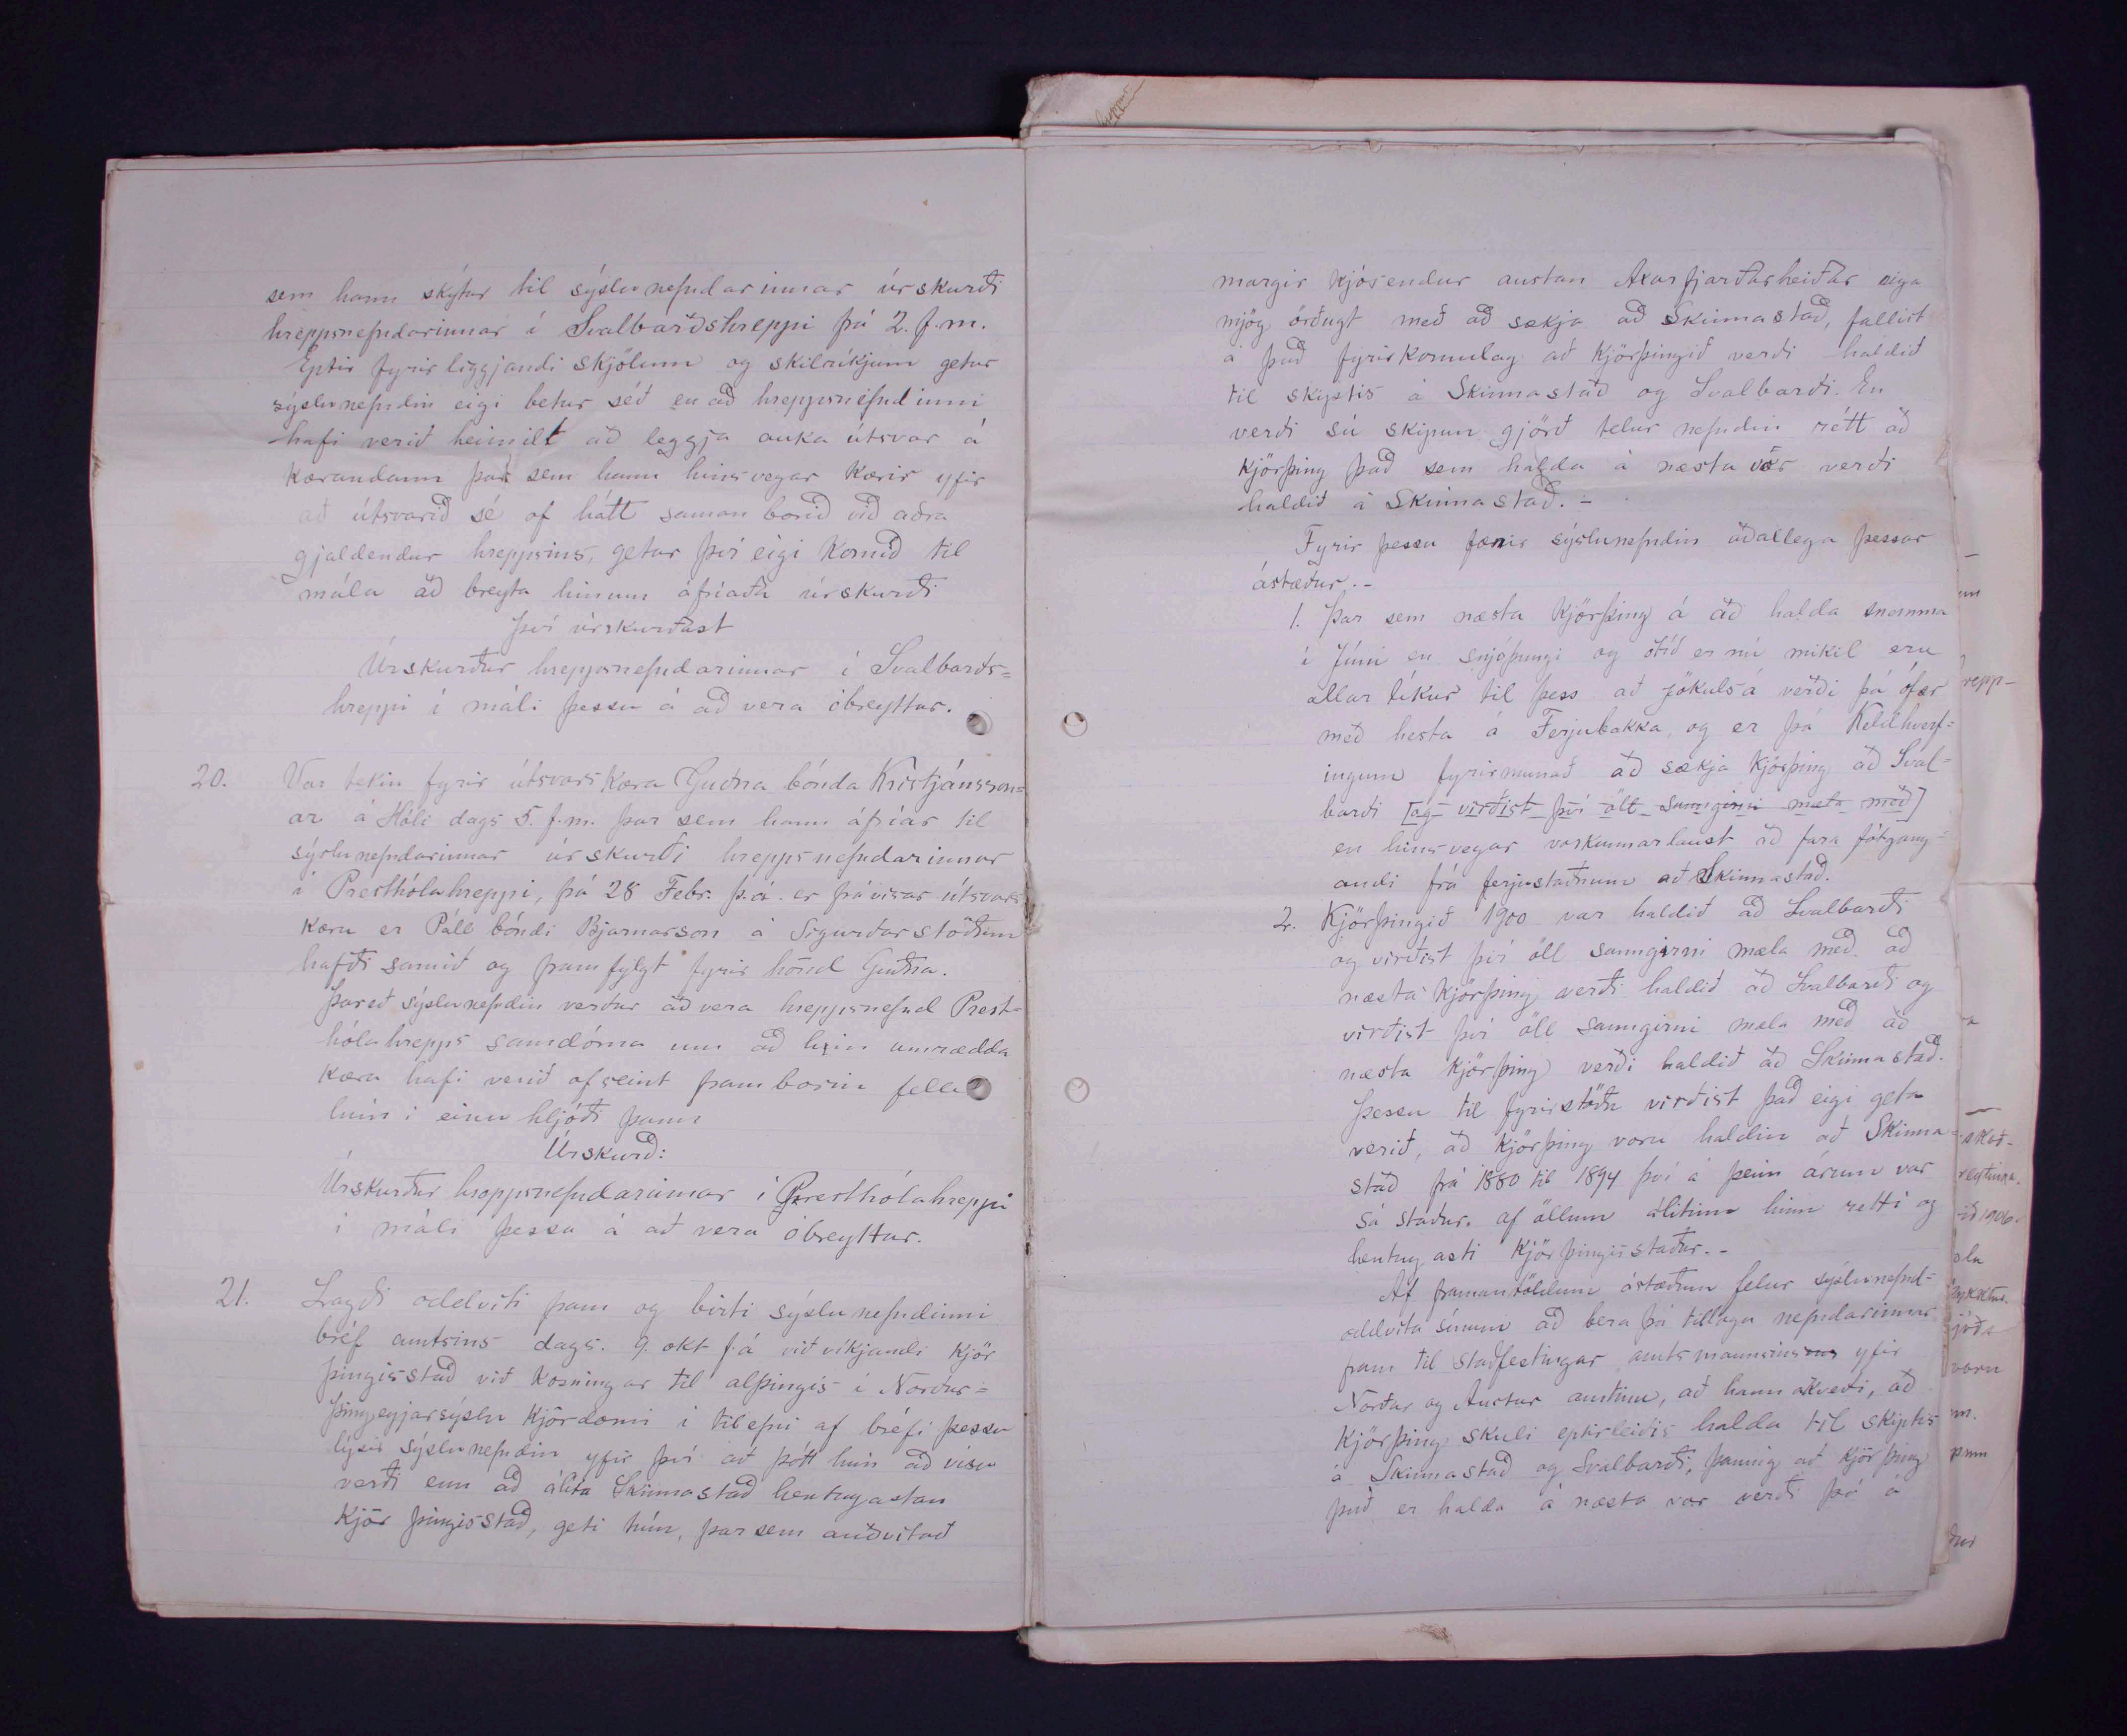 sem hann skýtur til sýslunefndarinnar úrskurði
hreppsnefndarinnar í Svalbarðshreppi frá 2. f.m.
Eptir fyrirliggjandi skjölum og skilríkjum getur
sýslunefndin eigi betur séð en að hreppsnefndinni
hafi verið heimilt að leggja auka útsvar á
kærandann þar sem hann hinsvegar kærir yfir
að útsvarið sé of hátt saman borið við aðra
gjaldendur hreppsins, getur því eigi komið til
mála að breyta hinum áfríaða úrskurði
Því úrskurðast
Úrskurður hreppsnefndarinnar í Svalbarðs=
hreppi í máli þessu á að vera óbreyttur.
20. Var tekin fyrir útsvarskæra Guðna bónda Kristjánsson=
ar á Hóli dags 5. f.m. þar sem hann áfríar til
sýslunefndarinnar úrskurði hreppsnefndarinnar
í Presthólahreppi, frá 28 Febr. þ.á. er frávísar útsvars
kæru er Páll bóndi Bjarnarson á Sigurðarstöðum
hafði samið og framfylgt fyrir hönd Guðna.
Þareð sýslunefndin verður að vera hreppsnefnd Prest=
hólahrepps samdóma um að hin umrædda
kæra hafi verið ofseint framborin fellir
hún í einu hljóði þann
Úrskurð:
Úrskurður hreppsnefndarinnar í Presthólahreppi
í máli þessu á að vera óbreyttur.
21. Lagði oddviti fram og birti sýslunefndinni
bréf amtsins dags. 9. okt f.á viðvíkjandi kjör
þingisstað við kosningar til alþingis í Norður=
þingeyjarsýslu kjördæmi í tilefni af bréfi þessu
lýsir sýslunefndin yfir því að þótt hún að vísu
verði enn að álíta Skinnastað hentugastan
kjör þingisstað, geti hún, þar sem auðvitað
margir kjósendur austan Axarfjarðarheiðar eiga
mjög örðugt með að sækja að Skinnastað, fallist
á það fyrirkomulag að kjörþingið verði haldið
til skiptis á Skinnastað og Svalbarði. En
verði sú skipun gjörð telur nefndin rétt að
kjörþing það sem halda á næsta vor verði
haldið á Skinnastað. -
Fyrir þessu færir sýslunefndin aðallega þessar
ástæður. -
1. Þar sem næsta kjörþing á að halda snemma
í Júni en snjóþungi og ótíð er nú mikil eru
allar líkur til þess að Jökulsá verði þá ófær
með hesta á Ferjubakka, og er þá Kelduhverf=
ingum fyrirmunað að sækja kjörþing að Sval=
barði [og virðist því öll sanngirni mæla með]
en hinsvegar vorkunnarlaust að fara fótgang-
andi frá ferjustaðnum að Skinnastað.
2. Kjörþingið 1900 var haldið að Svalbarði
og virðist því öll sanngirni mæla með að
næsta kjörþing verði haldið að Svalbarði og
virðist því öll sanngirni mæla með að
næsta kjörþing verði haldið að Skinnastað.
Þessu til fyrirstöðu virðist það eigi geta
verið, að kjörþing voru haldin að Skinna-
stað frá 1880 til 1894 því á þeim árum var
sá staður af öllum álitinn hinn rétti og
hentugasti kjörþingisstaður. -
Af framantöldum ástæðum felur sýslunefnd=
oddvita sínum að bera þá tillögu nefndarinnar
fram til staðfestingar amtsmannsins yfir
Norður og Austur amtinu, að hann ákveði, að
kjörþing skuli eptirleiðis halda til skiptis
á Skinnastað og Svalbarði, þannig að kjörþing
það er halda á næsta vor verði þá á